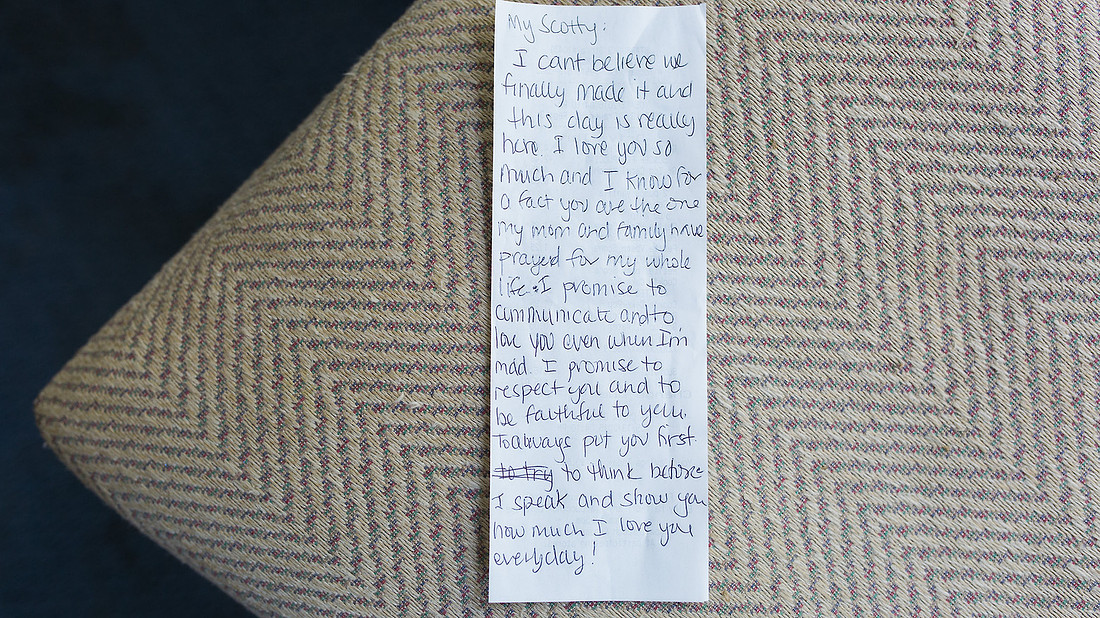 My Scotty:
I cant believe we
finally made it and
this day is really
here. I love you so
much and I know for
a fact you are the one
my mom and family have
prayed for my whole
life. I promise to
communicate and to
love you even when I'm
mad. I promise to
respect you and to
be faithful to you.
To always put you first.
to try to think before
I speak and show you
how much I love you
everyday!